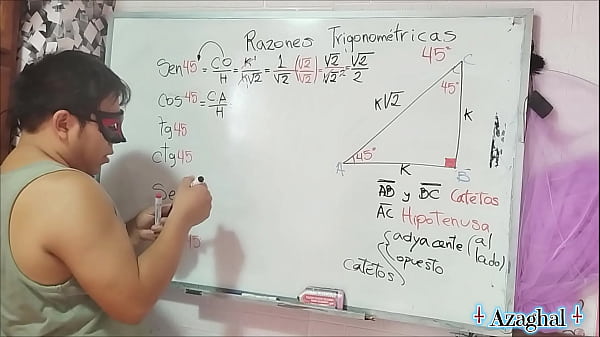 Razones Trigonométricas
Sen45 = CO/H = K¹/K√2 = 1/√2 (√2/√2) = √2/√2² = √2/2
Cos45 = CA/H
Tg45
cTg45
Se
45
45°
C
45°
K√2
K
A
45°
K
B
AB y BC Catetos
AC Hipotenusa
Catetos { adyacente (al lado)
opuesto
Azaghal